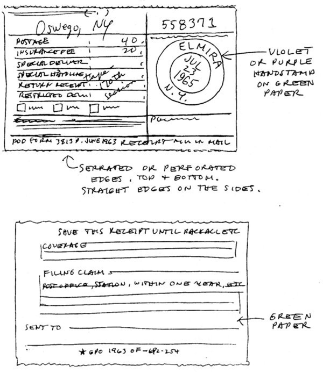 Oswego, NY
558371
POSTAGE 40
INSURANCE FEE 20
SPECIAL DELIVERY
SPECIAL HANDLING
RETURN RECEIPT
RESTRICTED
ELMIRA
JUL
1965
N.Y.
VIOLET
OR PURPLE
HANDSTAMP
ON GREEN
PAPER
POD FORM 3813-P, JUNE 1963 RECEIPT MAIL
SERRATED OR PERFORATED
EDGES, TOP & BOTTOM.
STRAIGHT EDGES ON THE SIDES.
SAVE THIS RECEIPT UNTIL PACKAGE ETC
COVERAGE
FILING CLAIM
POST OFFICE, STATION, WITHIN ONE YEAR, ETC
SENT TO
GREEN
PAPER
★ GPO 1963 OF-692-254